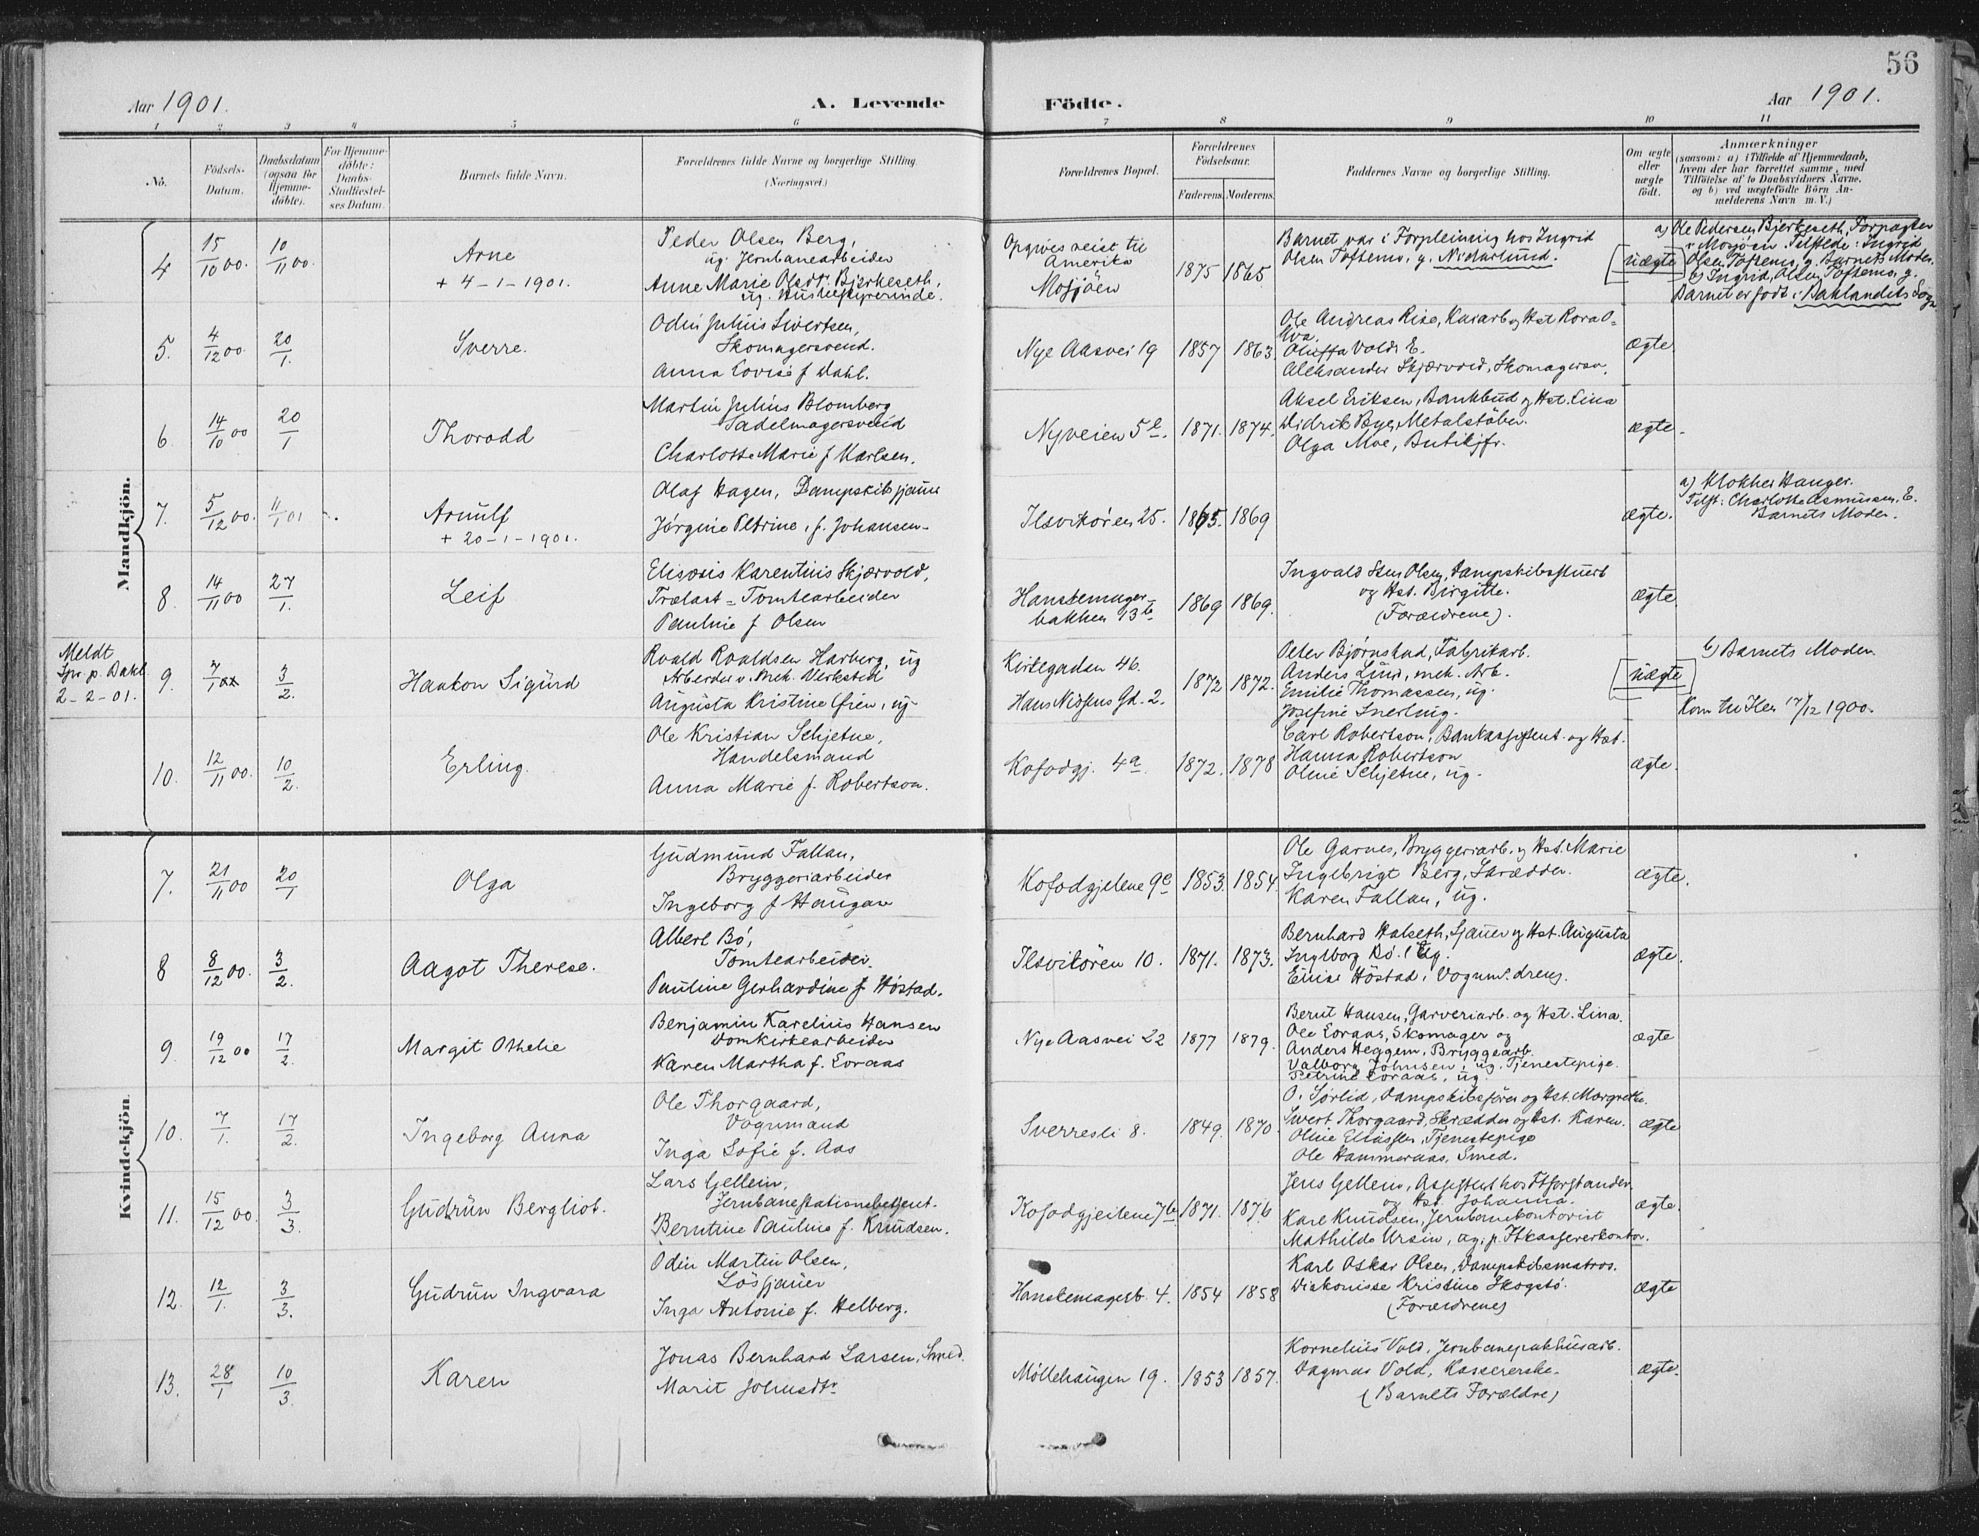 56
Aar 1901.
A. Levende
Födte.
Aar 1901.
1 2 3 4 5 6 7 8 9 10 11
No.
Födsels-
Datum.
Daabsdatum
(ogsaa for
Hjemme-
döbte).
For Hjemme-
döbte:
Daabs-
Stadfæstel-
ses Datum.
Barnets fulde Navn.
Forældrenes fulde Navne og borgerlige Stilling.
(Næringsvei.)
Forældrenes Bopæl.
Forældrenes
Födselsaar.
Faderens. Moderens.
Faddernes Navne og borgerlige Stilling.
Om ægte
eller
uægte
født.
Anmærkninger
(saasom: a) i Tilfælde af Hjemmedaab,
hvem der har forrettet samme, med
Tilföielse af to Daabsvidners Navne,
og b) ved uægtefödte Börn An-
melderens Navn m. V.)
Mandkjön.
4
15/10 00.
10/11 00.
Arne
+ 4-1-1901.
Peder Olsen Berg,
ug. Jernbanearbeider
Anne Marie Olsdr. Bjerkeseth,
ug. Husbestyrerinde.
Opgives reist til
Amerika
Mosjöen
1875 1865
Barnet var i Forpleining hos Ingrid
Olsen Toftemo, g. Nidarlund.
uægte
a) Ole Pedersen Bjerkeseth, Forpagter
i Mosjöen Tilstede: Ingrid
Olsen Toftemo, g. Barnets Moder.
b) Ingrid Olsen Toftemo, g.
Barnet er födt i Baklandets Sogn
5.
4/12 00
20/1.
Sverre.
Odin Julius Sivertsen,
Skomagersvend.
Anna Lovise f. Dahl.
Nye Aasvei 19
1857 1863.
Ole Andreas Rise, Kaiarb og Hst Kora O-
Oluffa Vold, E.
Aleksander Skjærvold, Skomagersv.
ægte.
6.
14/10 00
20/1
Thorodd
Martin Julius Blomberg
Sadelmagersvend
Charlotte Marie f. Karlsen.
Nyveien 5e.
1871. 1874.
Aksel Eriksen, Bankbud og Hst. Lina
Didrik Bye, Metalstöber.
Olga Moe, Butikjfr.
ægte.
7.
5/12 00.
11/1 01
Arnulf
+ 20-1-1901.
Olaf Hagen, Dampskibssjauer
Jörgine Petrine, f. Johansen.
Ilsvikören 25.
1865. 1869
ægte.
a) Klokker Hanger.
Tilst: Charlotte Asmussen, E.
Barnets Moder.
8.
14/11 00
27/1.
Leif
Elisæus Karentius Skjærvold,
Trælast-Tomtearbeider
Pauline f Olsen
Hanskemager-
bakken 13b
1869 1869.
Ingvald Sten Olsen, Dampskibsstuert
og Hst. Birgitte.
(Forældrene).
ægte
Meldt
Spr. p. Dahl
2-2-01.
9.
7/1
3/2.
Haakon Sigurd
Roald Roaldsen Harberg, ug
Arbeider v. mek. Verksted
Augusta Kristine Öien, ug.
Kirkegaden 46.
Hans Nissens Gd. 2.
1872 1872.
Peter Björnstad, Fabrikarb.
Anders Lund, mek. Arb.
Emilie Thomassen, ug.
Josefine Snerting.
uægte
b) Barnets Moder.
Kom til Ilen 17/12 1900.
10.
12/11 00.
10/2.
Erling.
Ole Kristian Schjetne,
Handelsmand
Anna Marie f. Robertson.
Kofodgj. 4a.
1872. 1878
Carl Robertson, Bankassistent og Hst.
Hanna Robertson
Oline Schjetne, ug.
ægte.
Kvindekjön.
7.
21/11 00
20/1
Olga
Gudmund Fallan,
Bryggeriarbeider
Ingeborg f Haugan
Kofodgjetene 9c
1853. 1854.
Ole Garnes, Bryggeriarb. og Hst. Marie
Ingebrigt Berg, Skrædder.
Karen Fallan, ug.
ægte.
8
8/12 00.
3/2.
Aagot Therese.
Albert Bö,
Tomtearbeider.
Pauline Gerhardine f. Höstad.
Ilsvikören 10.
1871. 1873.
Bernhard Halseth, Sjauer og Hst. Augusta
Ingeborg Bö, ug.
Elise Höstad, Vognm. dreng.
ægte.
9.
19/12 00
17/2.
Margit Othelie
Benjamin Karelius Hansen
Domkirkearbeider
Karen Martha f. Eoraas
Nye Aasvei 22
1877 1879.
Bernt Hansen, Garveriarb. og Hst. Lina.
Ole Eoraas, Skomager og
Anders Heggem, Bryggearb.
Valborg Johnsen, ug. Tjenestepige.
Petrine Eoraas, ug.
ægte
10.
7/1.
17/2.
Ingeborg Anna
Ole Thorgaard,
Vognmand
Inga Sofie f. Aas
Sverresli 8.
1849. 1870.
O. Sörlid, Dampskibsförer og Hst. Margrethe.
Sivert Thorgaard, Skrædder og Hst. Karen.
Oline Eliassen, Tjenestepige
Ole Hammeraas, Smed.
ægte
11.
15/12 00.
3/3.
Gudrun Bergliot.
Lars Gellein,
Jernbanestationsbetjent.
Berntine Pauline f. Knudsen.
Kofodgjeitene 7b
1871. 1876
Jens Gellein, Assistent hos Ftforstander
og Hst. Johanna.
Karl Knudsen, Jernbanekontorist
Mathilde Ursin, ug. p. Ftkassererkontor.
ægte.
12.
12/1.
3/3.
Gudrun Ingvara
Odin Martin Olsen,
Lössjauer
Inga Antonie f. Helberg.
Hanskemagerb. 4.
1854 1858
Karl Oskar Olsen, Dampskibsmatros.
Diakonisse Kristine Skogstö.
(Forældrene)
ægte
13.
28/1
10/3.
Karen
Jonas Bernhard Larsen, Smed.
Marit Johnsdtr
Möllehaugen 19.
1853 1857.
Kornelius Vold, Jernbanepakhusarb.
Dagmar Vold, Kassererske.
(Barnets Forældre)
ægte.